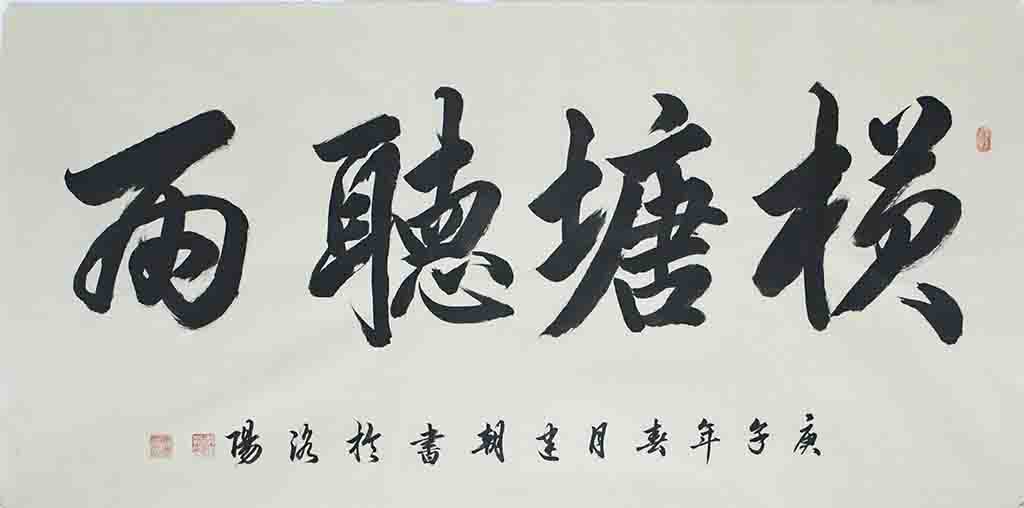 横塘聽雨
庚子年春月建朝書於洛陽